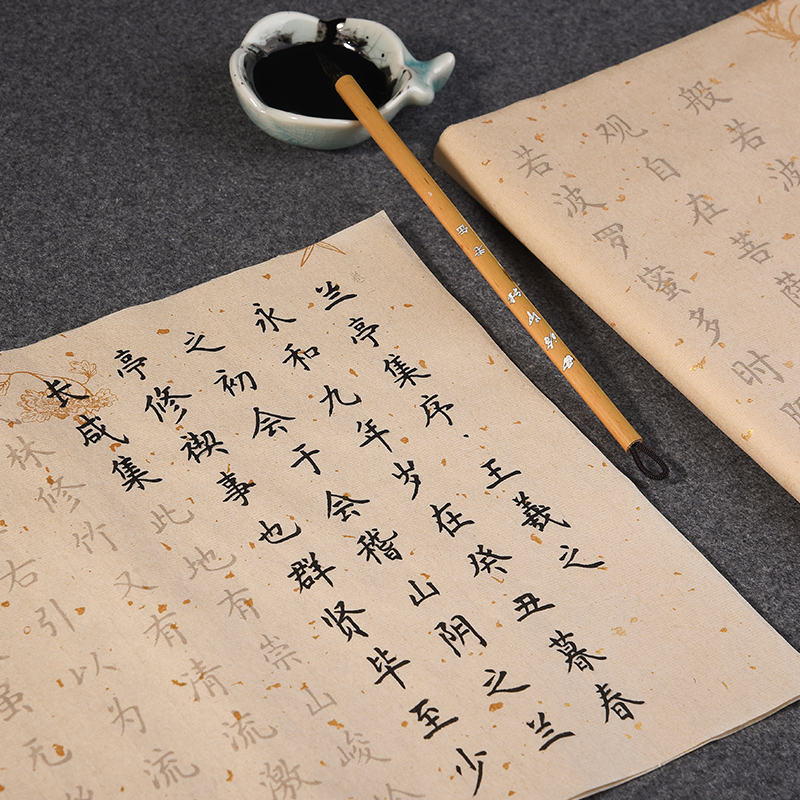 般若波
观自在菩萨
若波罗蜜多时
兰亭集序.王羲之
永和九年岁在癸丑暮春
之初会于会稽山阴之兰
亭修禊事也群贤毕至少
长咸集此地有崇山峻
林修竹又有清流激
右引以为流
虽无